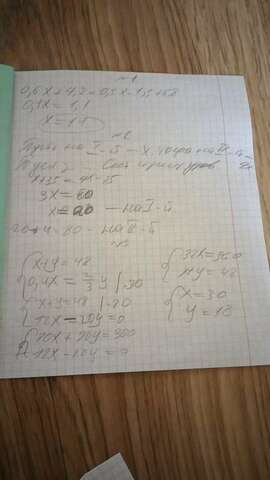 N1
0,6x + 4,2 = 0,5x - 1,5 + 6,8
0,1x = 1,1
x = 11
N2
Пусть на I-й - x тогда на II-й - 4x
x+35 = 4x - 25
3x = 60
x = 20 - на I-й
20·4 = 80 - на II-й
N3
x+y=48
0,4x = 2/3 y | ·30
x+y=48 | ·20
12x = 20y = 0
20x + 20y = 960
12x - 20y = 0
32x = 960
x+y = 48
x = 30
y = 18